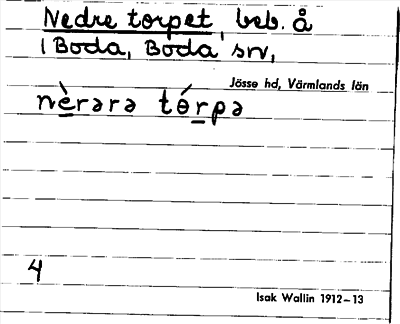 Nedre torpet, beb. å
1 Boda, Boda sn,
Jösse hd, Värmlands län
nè̱rərə tɵ́ṟpə
4
Isak Wallin 1912–13